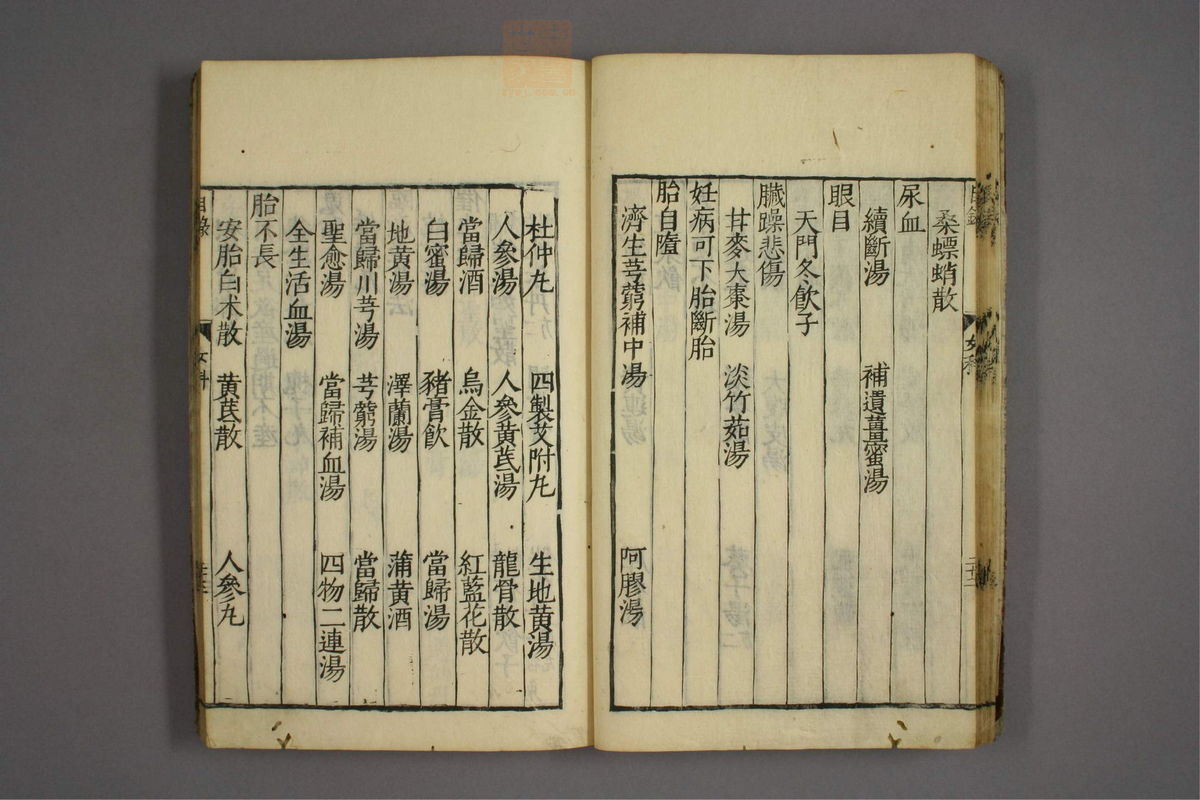 桑螵蛸散
尿血
續斷湯 補遺薑蜜湯
眼目
天門冬飲子
臟躁悲傷
甘麥大棗湯 淡竹茹湯
妊病可下胎斷胎
胎自墮
濟生芎藭補中湯 阿膠湯
杜仲丸 四製艾附丸 生地黃湯
人參湯 人參黃芪湯 龍骨散
當歸酒 烏金散 紅藍花散
白蜜湯 豬膏飲 當歸湯
地黃湯 澤蘭湯 蒲黃酒
當歸川芎湯 芎藭湯 當歸散
聖愈湯 當歸補血湯 四物二連湯
全生活血湯
胎不長
安胎白术散 黃芪散 人參丸
目錄 女科